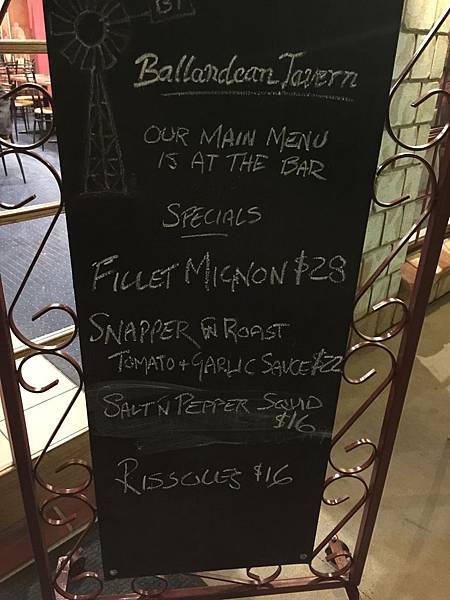 Ballandean Tavern
OUR MAIN MENU
IS AT THE BAR
SPECIALS
FILLET MIGNON $28
SNAPPER W ROAST
TOMATO + GARLIC SAUCE $22
SALT N PEPPER SQUID
$16
RISSOLES $16